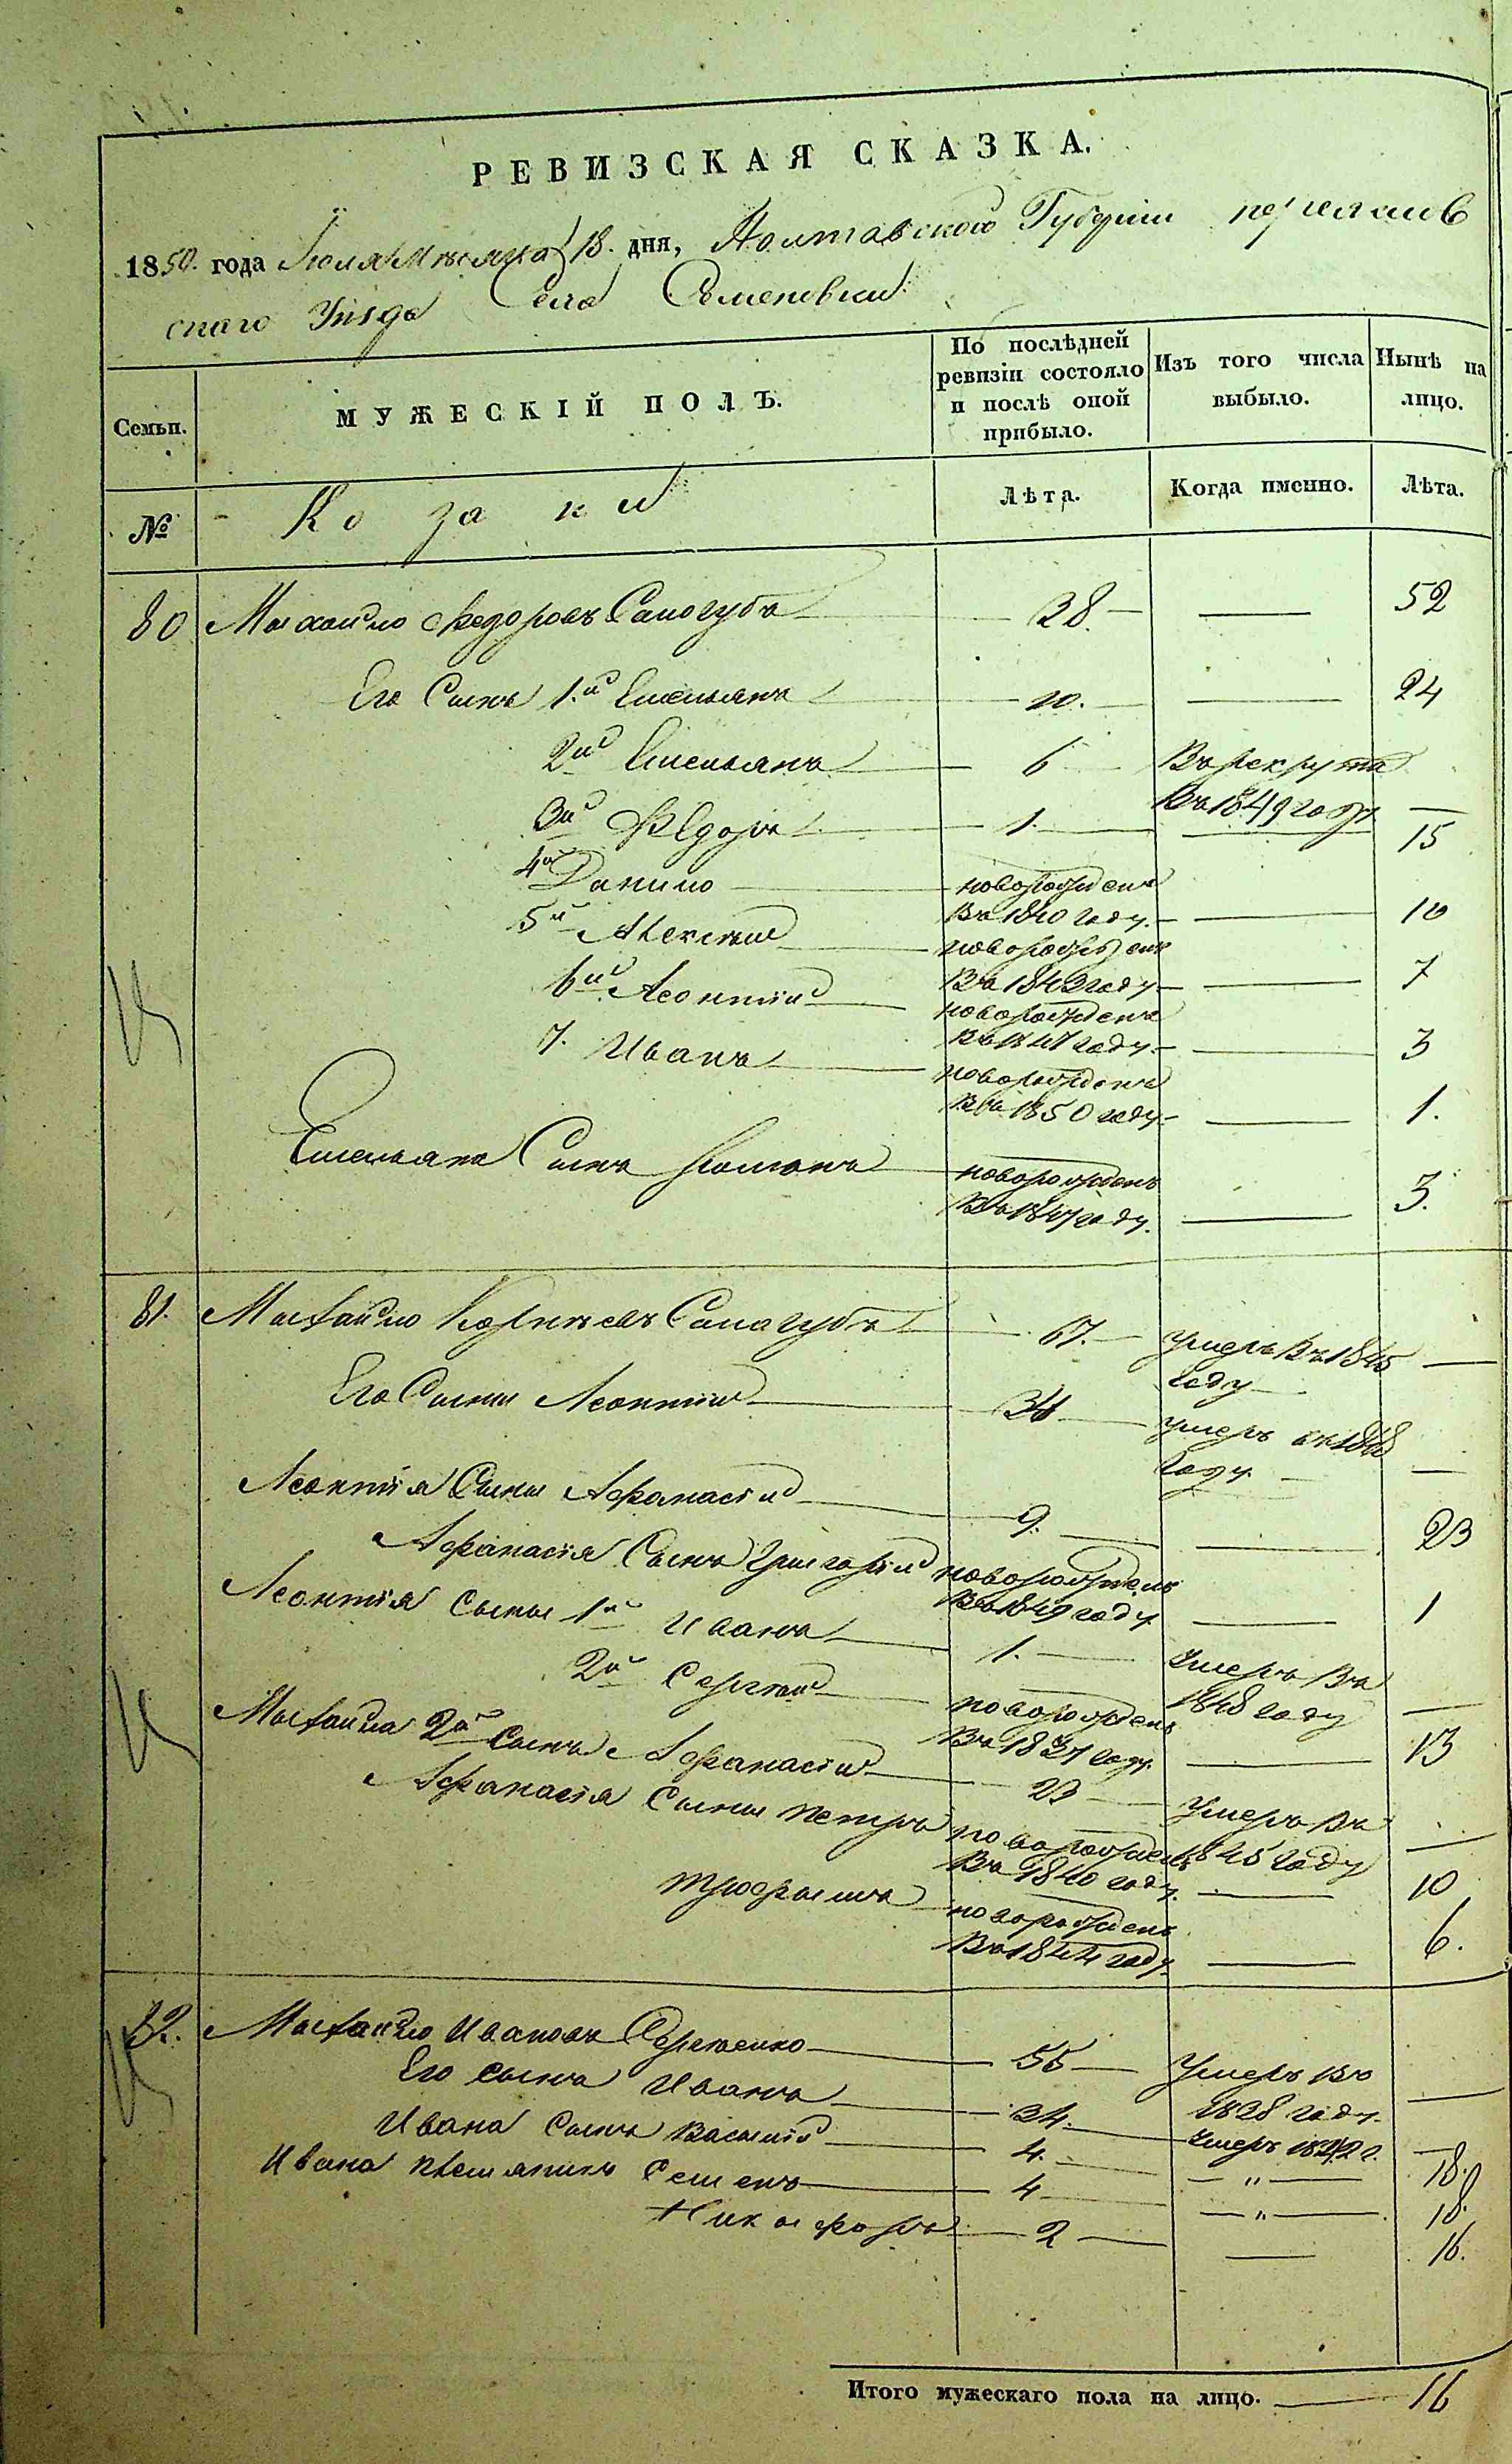 РЕВИЗСКАЯ СКАЗКА.
1850. года Іюля Мѣсяца 18. дня, Полтавской Губерніи переяслов
скаго Уѣзда Села Семеновки
Семьи.
МУЖЕСКІЙ ПОЛЪ.
По послѣдней ревизіи состояло и послѣ оной прибыло.
Изъ того числа выбыло.
Нынѣ на лицо.
№
Козаки
Лѣта.
Когда именно.
Лѣта.
80 Михайло Федоровъ Самогубъ 38. 52
Его Сынъ 1.й Емельянъ 10. 24
2й Емельянъ 6 Въ рекрута
Въ 1849 году
3й Федоръ 1. 15
4й Данило новорожденъ
Въ 1840 году. 10
5й Алексѣй новорожденъ
Въ 1843 году 7
6й Леонтій новорожденъ
Въ 1847 году. 3
7. Иванъ новорожденъ
Въ 1850 году 1.
Емельяна Сынъ Романъ новорожденъ
Въ 1847 году. 3.
81. Михайло Корнѣевъ Самогубъ 67. умеръ Въ 1845
году
Его Сыны Леонтій 34 умеръ въ 1848
году
Леонтія Сыны Афанасій 9. 23
Афанасія Сынъ Григорій новорожденъ
Въ 1849 году 1
Леонтія Сыны 1й Иванъ 1. Умеръ Въ
1848 году
2й Сергѣй новорожденъ
Въ 1837 году. 13
Михайла 2й Сынъ Афанасій 23 Умеръ Въ
1845 году
Афанасія Сыны Петръ новорожденъ
Въ 1840 году. 10
Трофимъ новорожденъ
Въ 1844 году 6.
82. Михайло Ивановъ Сергѣенко 55 Умеръ Въ
1838 году.
Его сынъ Иванъ 34. Умеръ 1842 г.
Ивана Сынъ Василій 4. " 18.
Ивана племяники Семенъ 4 " 18.
Никифоръ 2 16.
Итого мужескаго пола на лицо. 16